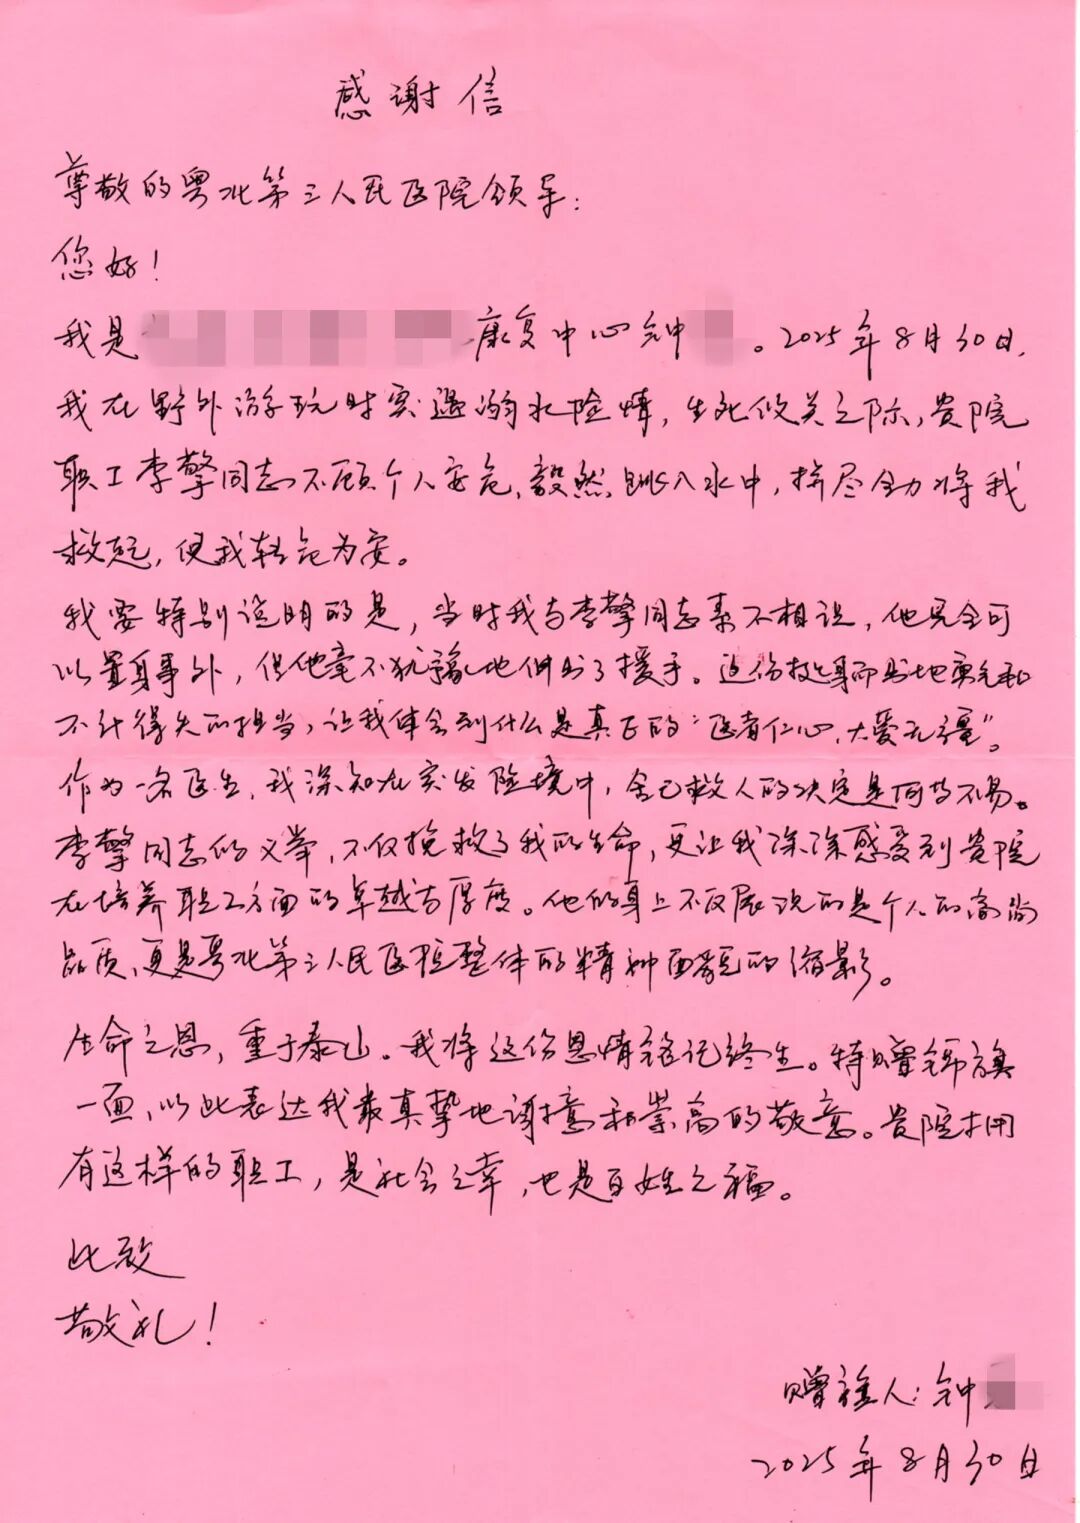 感谢信
尊敬的粤北第三人民医院领导：
您好！
我是 康复中心钟 。2025年8月30日，
我在野外游玩时突遇溺水险情，生死攸关之际，贵院
职工李擎同志不顾个人安危，毅然跳入水中，拼尽全力将我
救起，使我转危为安。
我要特别说明的是，当时我与李擎同志素不相识，他完全可
以置身事外，但他毫不犹豫地伸出了援手。这份挺身而出地勇气和
不计得失的担当，让我体会到什么是真正的“医者仁心，大爱无疆”。
作为一名医生，我深知在突发险境中，舍己救人的决定是何等不易。
李擎同志的义举，不仅挽救了我的生命，更让我深深感受到贵院
在培养职工方面的卓越与厚度。他的身上不仅展现的是个人的高尚
品质，更是粤北第三人民医院整体的精神面貌的缩影。
生命之恩，重于泰山。我将这份恩情铭记终生。特赠锦旗
一面，以此表达我最真挚地谢意和崇高的敬意。贵院拥
有这样的职工，是社会之幸，也是百姓之福。
此致
敬礼！
赠旗人：钟
2025年8月30日